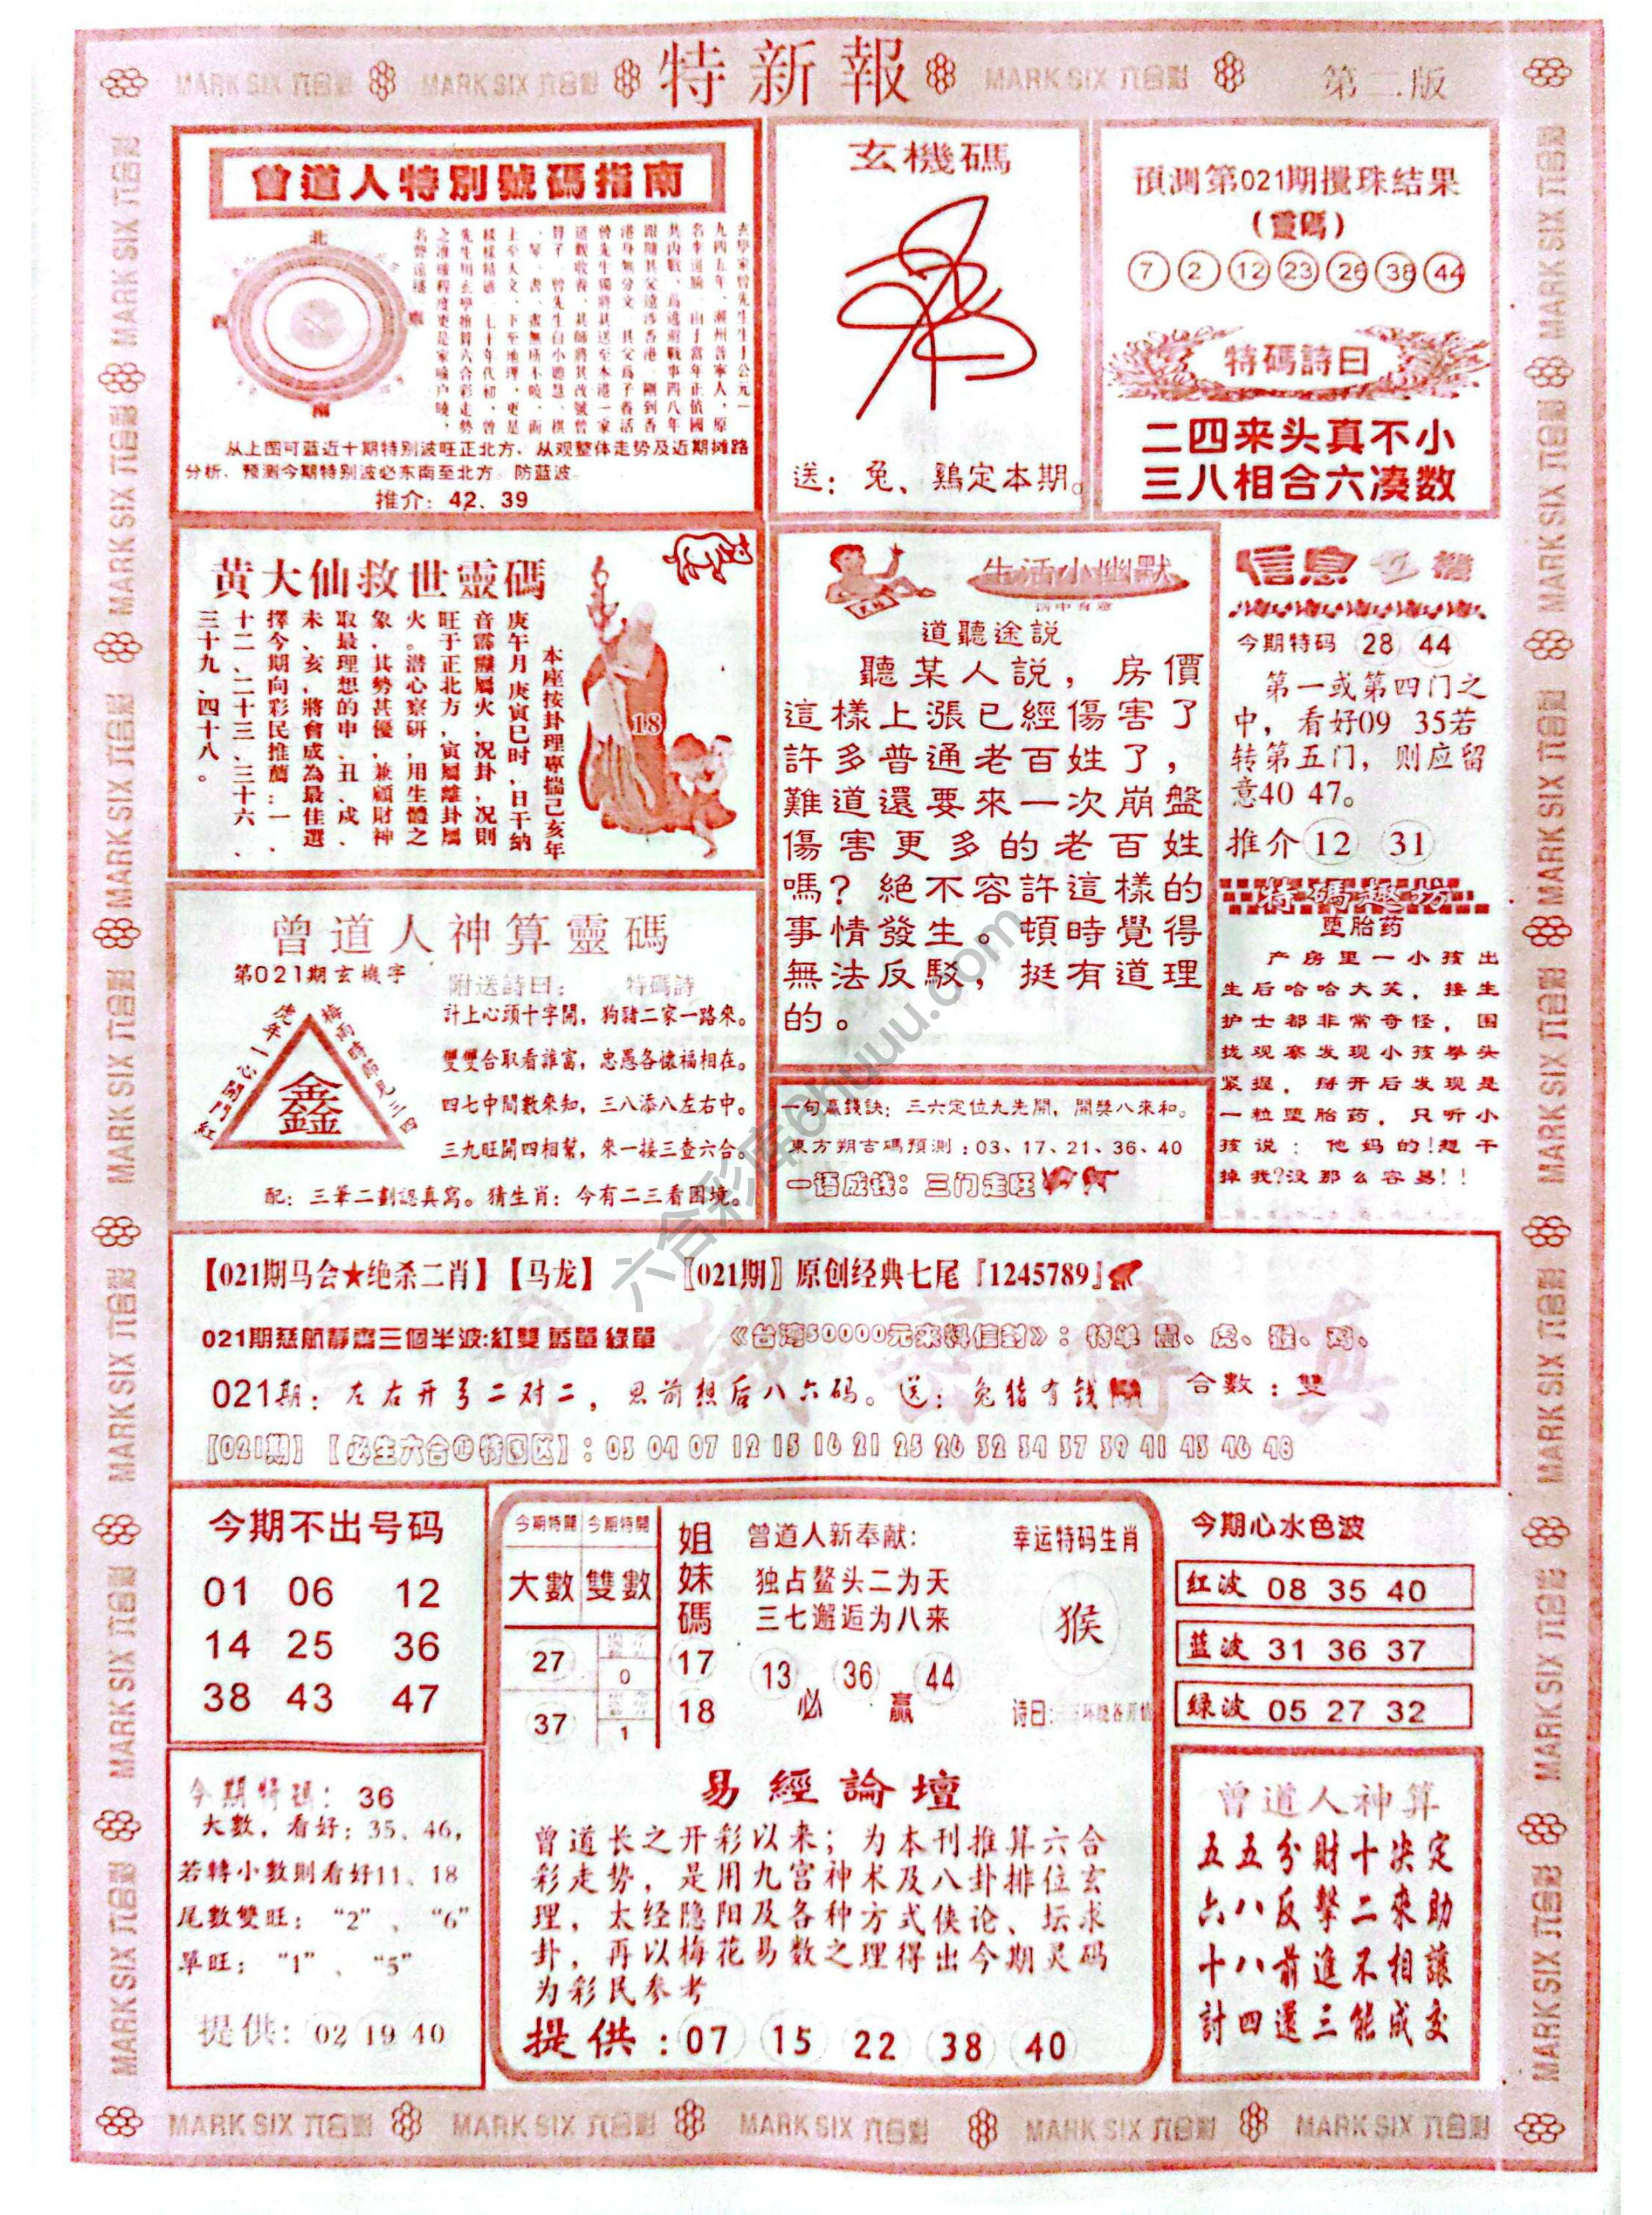 MARK SIX 六合彩
MARK SIX 六合彩
特新報
MARK SIX 六合彩
第二版
曾道人特別號碼指南
北
南
从上图可蓝近十期特别波旺正北方，从观整体走势及近期摊路
分析，预测今期特别波必东南至北方。防蓝波。
推介：42、39
玄機碼
送：兔、鷄定本期。
預測第021期攪珠結果
(靈碼)
7 2 12 23 26 38 44
特碼詩曰
二四来头真不小
三八相合六凑数
黄大仙救世靈碼
本座按卦理專揣己亥年
庚午月庚寅巳时，日干納
音霹靂屬火，况卦，况則
旺于正北方，寅屬離卦屬
火。潜心察研，用生體之
象，其勢甚優，兼顧財神
取最理想的申、丑、戌、
未、亥，將會成為最佳選
擇今期向彩民推薦：一、
十二、二十三、三十六、
三十九、四十八。
18
生活小幽默
道聽途説
聽某人説，房價
這樣上漲已經傷害了
許多普通老百姓了，
難道還要來一次崩盤
傷害更多的老百姓
嗎？絕不容許這樣的
事情發生。頓時覺得
無法反駁，挺有道理
的。
信息玄機
今期特码 28 44
第一或第四门之
中，看好09 35若
转第五门，则应留
意40 47。
推介 12 31
特碼趣坊
堕胎药
产房里一小孩出
生后哈哈大笑，接生
护士都非常奇怪，围
找观察发现小孩拳头
紧握，掰开后发现是
一粒堕胎药，只听小
孩说：他妈的！想干
掉我？没那么容易！！
曾道人神算靈碼
第021期玄機字
附送詩曰：
特碼詩
鑫
計上心頭十字開，狗豬二家一路來。
雙雙合取看誰富，忠愚各懷福相在。
四七中間數來知，三八添八左右中。
三九旺開四相幫，來一接三查六合。
配：三筆二劃認真寫。猜生肖：今有二三看困境。
一句贏錢訣：三六定位九先開，開獎八來和。
東方朔吉碼預測：03、17、21、36、40
一语成钱：三门走旺
【021期马会★绝杀二肖】【马龙】
〖021期〗原创经典七尾『1245789』
021期慈航靜齋三個半波:紅雙 藍單 綠單
《台湾50000元来料信封》：特单 鼠、虎、猴、鸡、
021期：左右开弓二对二，思前想后八六码。送：兔猪有钱
合數：雙
【021期】【必生六合㊣特围区】：03 04 07 12 15 16 21 25 26 32 34 37 39 41 43 46 48
今期不出号码
01 06 12
14 25 36
38 43 47
今期特開 今期特開
大數 雙數
27 0
37 1
姐妹碼
17
18
曾道人新奉献：
独占鳌头二为天
三七邂逅为八来
13 36 44
必 赢
幸运特码生肖
猴
今期心水色波
红波 08 35 40
蓝波 31 36 37
绿波 05 27 32
今期特碼：36
大數，看好：35、46，
若轉小數則看好11、18
尾數雙旺：“2”、“6”
單旺：“1”、“5”
提供：02 19 40
易經論壇
曾道长之开彩以来；为本刊推算六合
彩走势，是用九宫神术及八卦排位玄
理，太经隐阳及各种方式侠论、坛求
卦，再以梅花易数之理得出今期灵码
为彩民参考
提供：07 15 22 38 40
曾道人神算
五五分財十决定
六八反擊二來助
十八前進不相讓
討四還三能成交
MARK SIX 六合彩
MARK SIX 六合彩
MARK SIX 六合彩
MARK SIX 六合彩
MARK SIX 六合彩
六合彩库6huuu.com